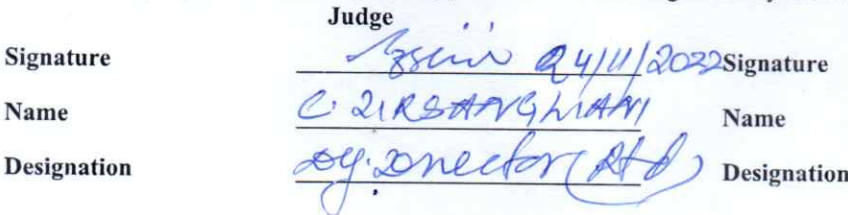 Judge
Signature 24/11/2022 Signature
Name C. ZIRSANGLIANI Name
Designation Dy. Director (Rtd) Designation